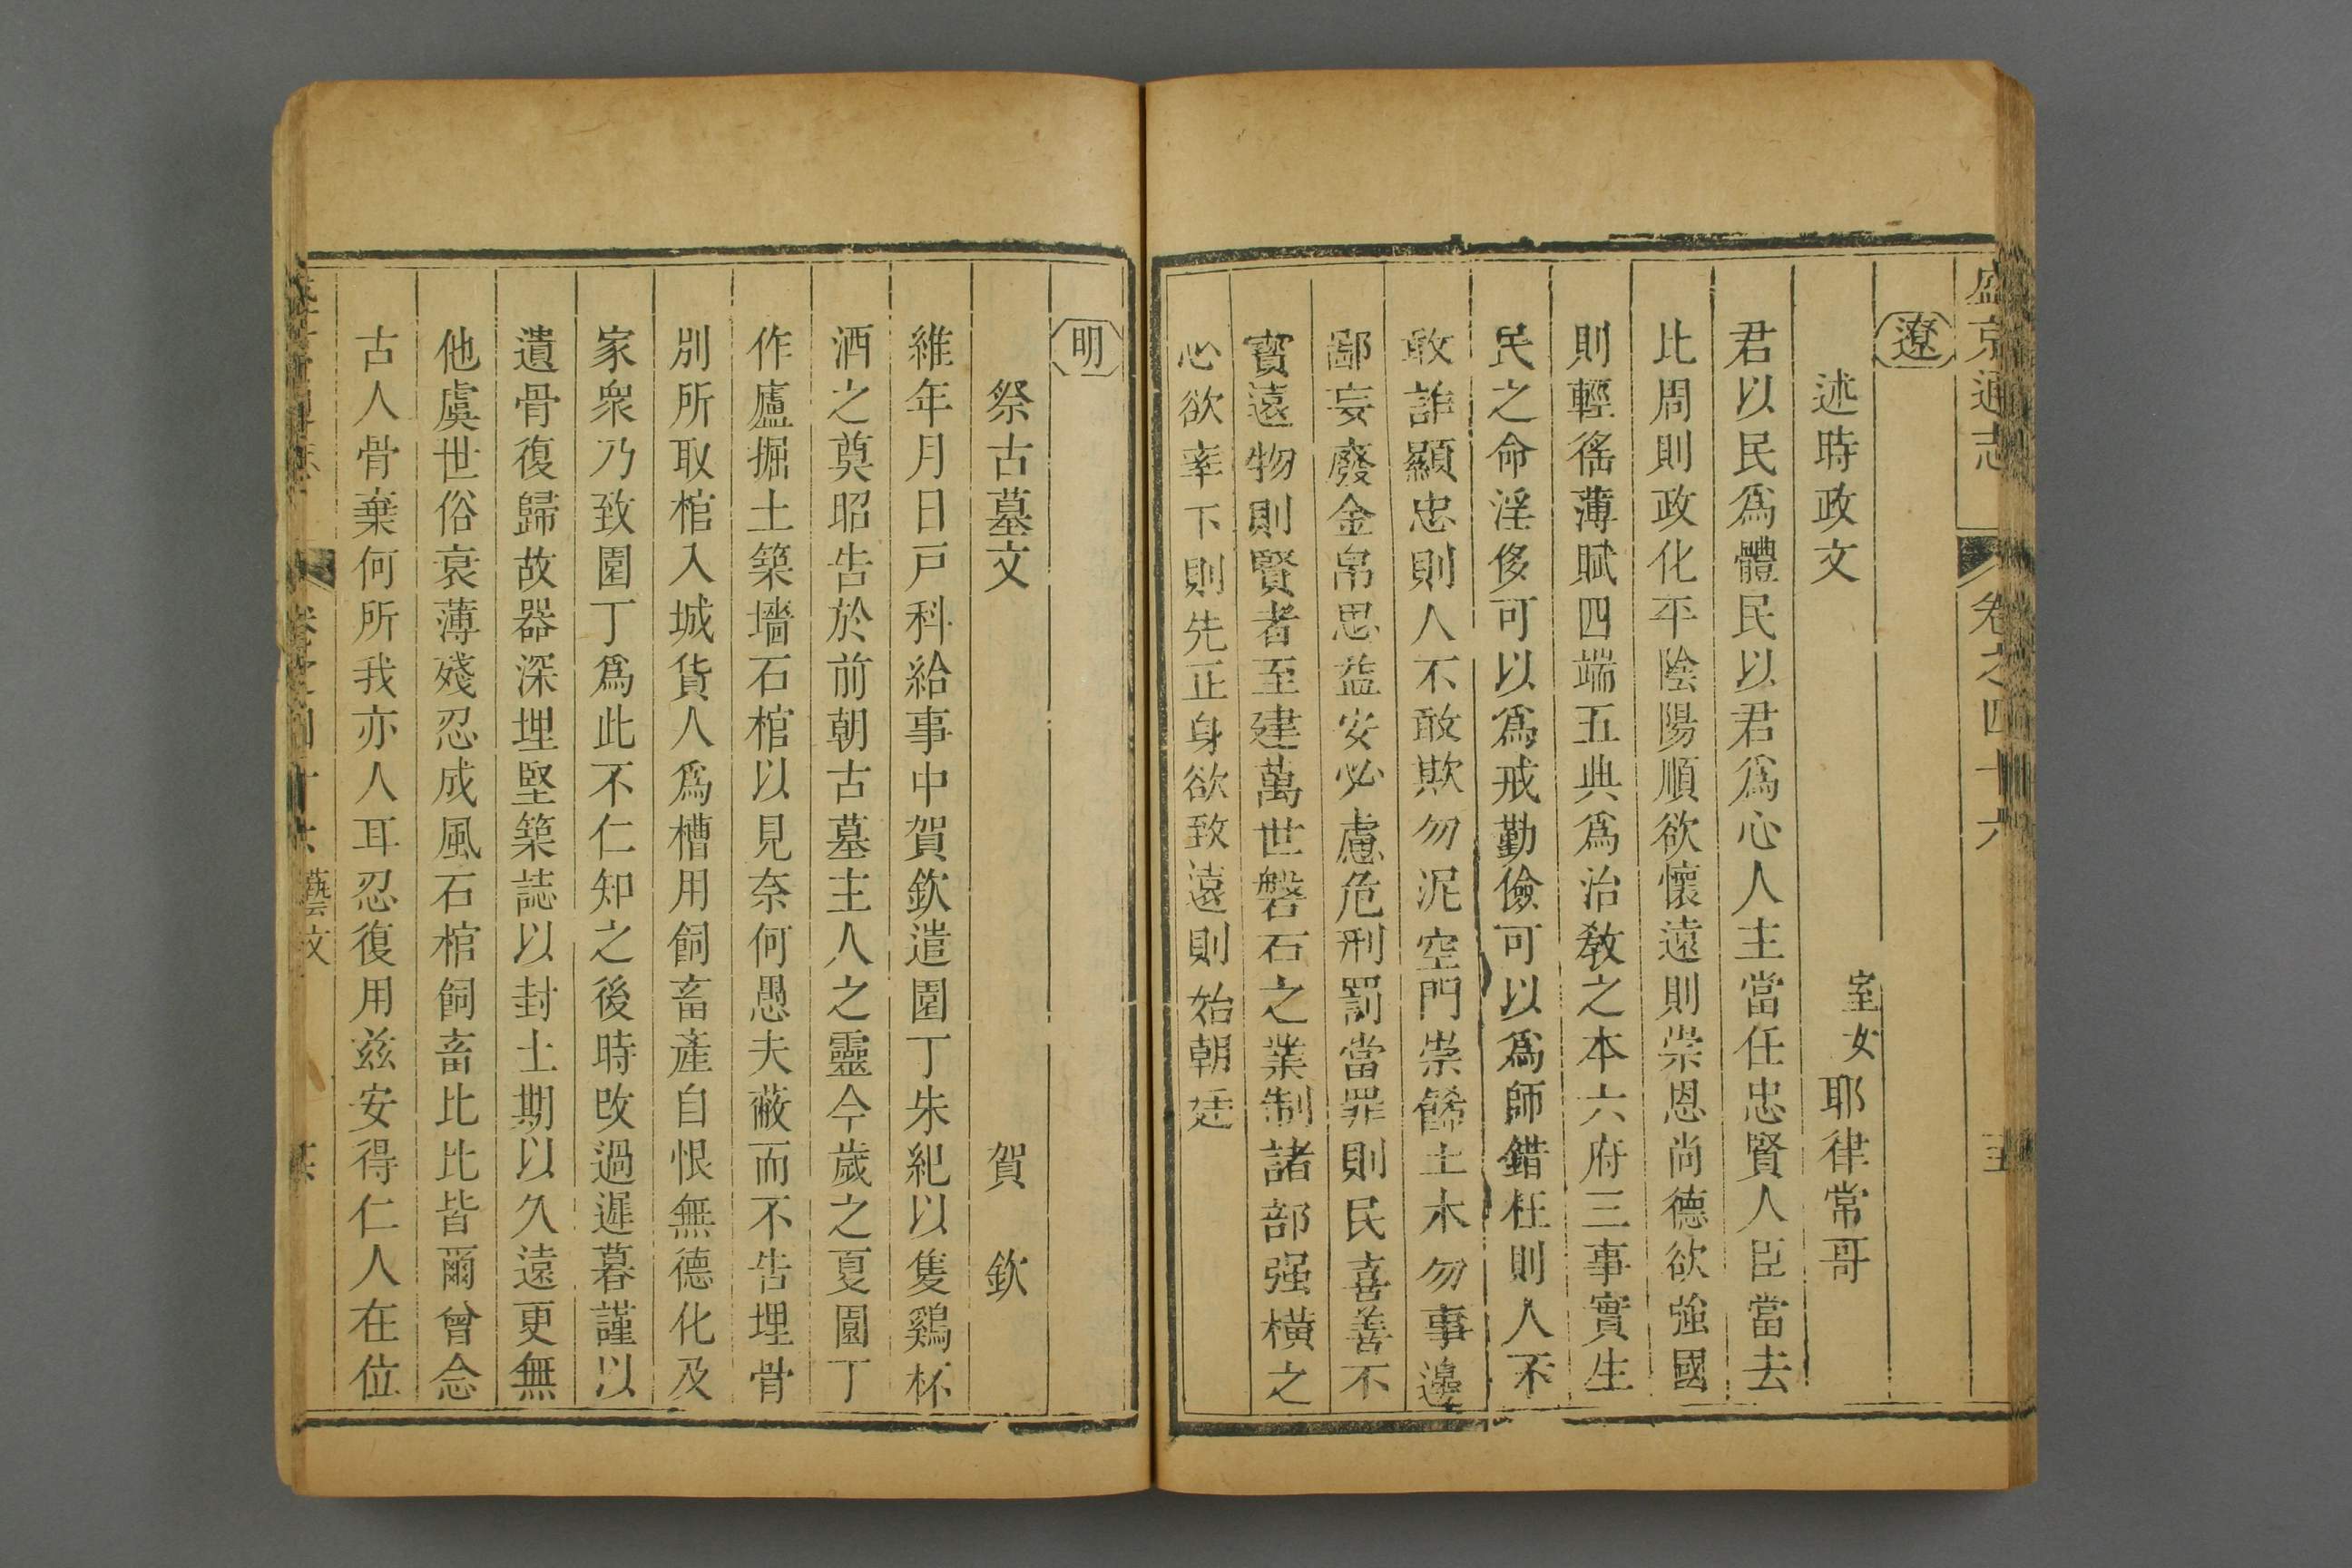 盛京通志 卷之四十六
遼
述時政文 室女耶律常哥
君以民爲體民以君爲心人主當任忠賢人臣當去
比周則政化平陰陽順欲懷遠則崇恩尚德欲強國
則輕徭薄賦四端五典爲治教之本六府三事實生
民之命淫侈可以爲戒勤儉可以爲師錯枉則人不
敢詐顯忠則人不敢欺勿泥空門崇餙土木勿事邊
鄙妄廢金帛思益安必慮危刑罰當罪則民喜善不
寳遠物則賢者至建萬世磐石之業制諸部强橫之
心欲率下則先正身欲致遠則始朝廷
明
祭古墓文 賀欽
維年月日戸科給事中賀欽遣園丁朱紀以隻鷄杯
酒之奠昭告於前朝古墓主人之靈今歲之夏園丁
作廬掘土築墻石棺以見奈何愚夫蔽而不告埋骨
別所取棺入城貨人爲槽用飼畜產自恨無德化及
家衆乃致園丁爲此不仁知之後時改過遲暮謹以
遺骨復歸故器深埋堅築誌以封土期以久遠更無
他虞世俗哀薄殘忍成風石棺飼畜比比皆爾曾念
古人骨棄何所我亦人耳忍復用兹安得仁人在位
藝文